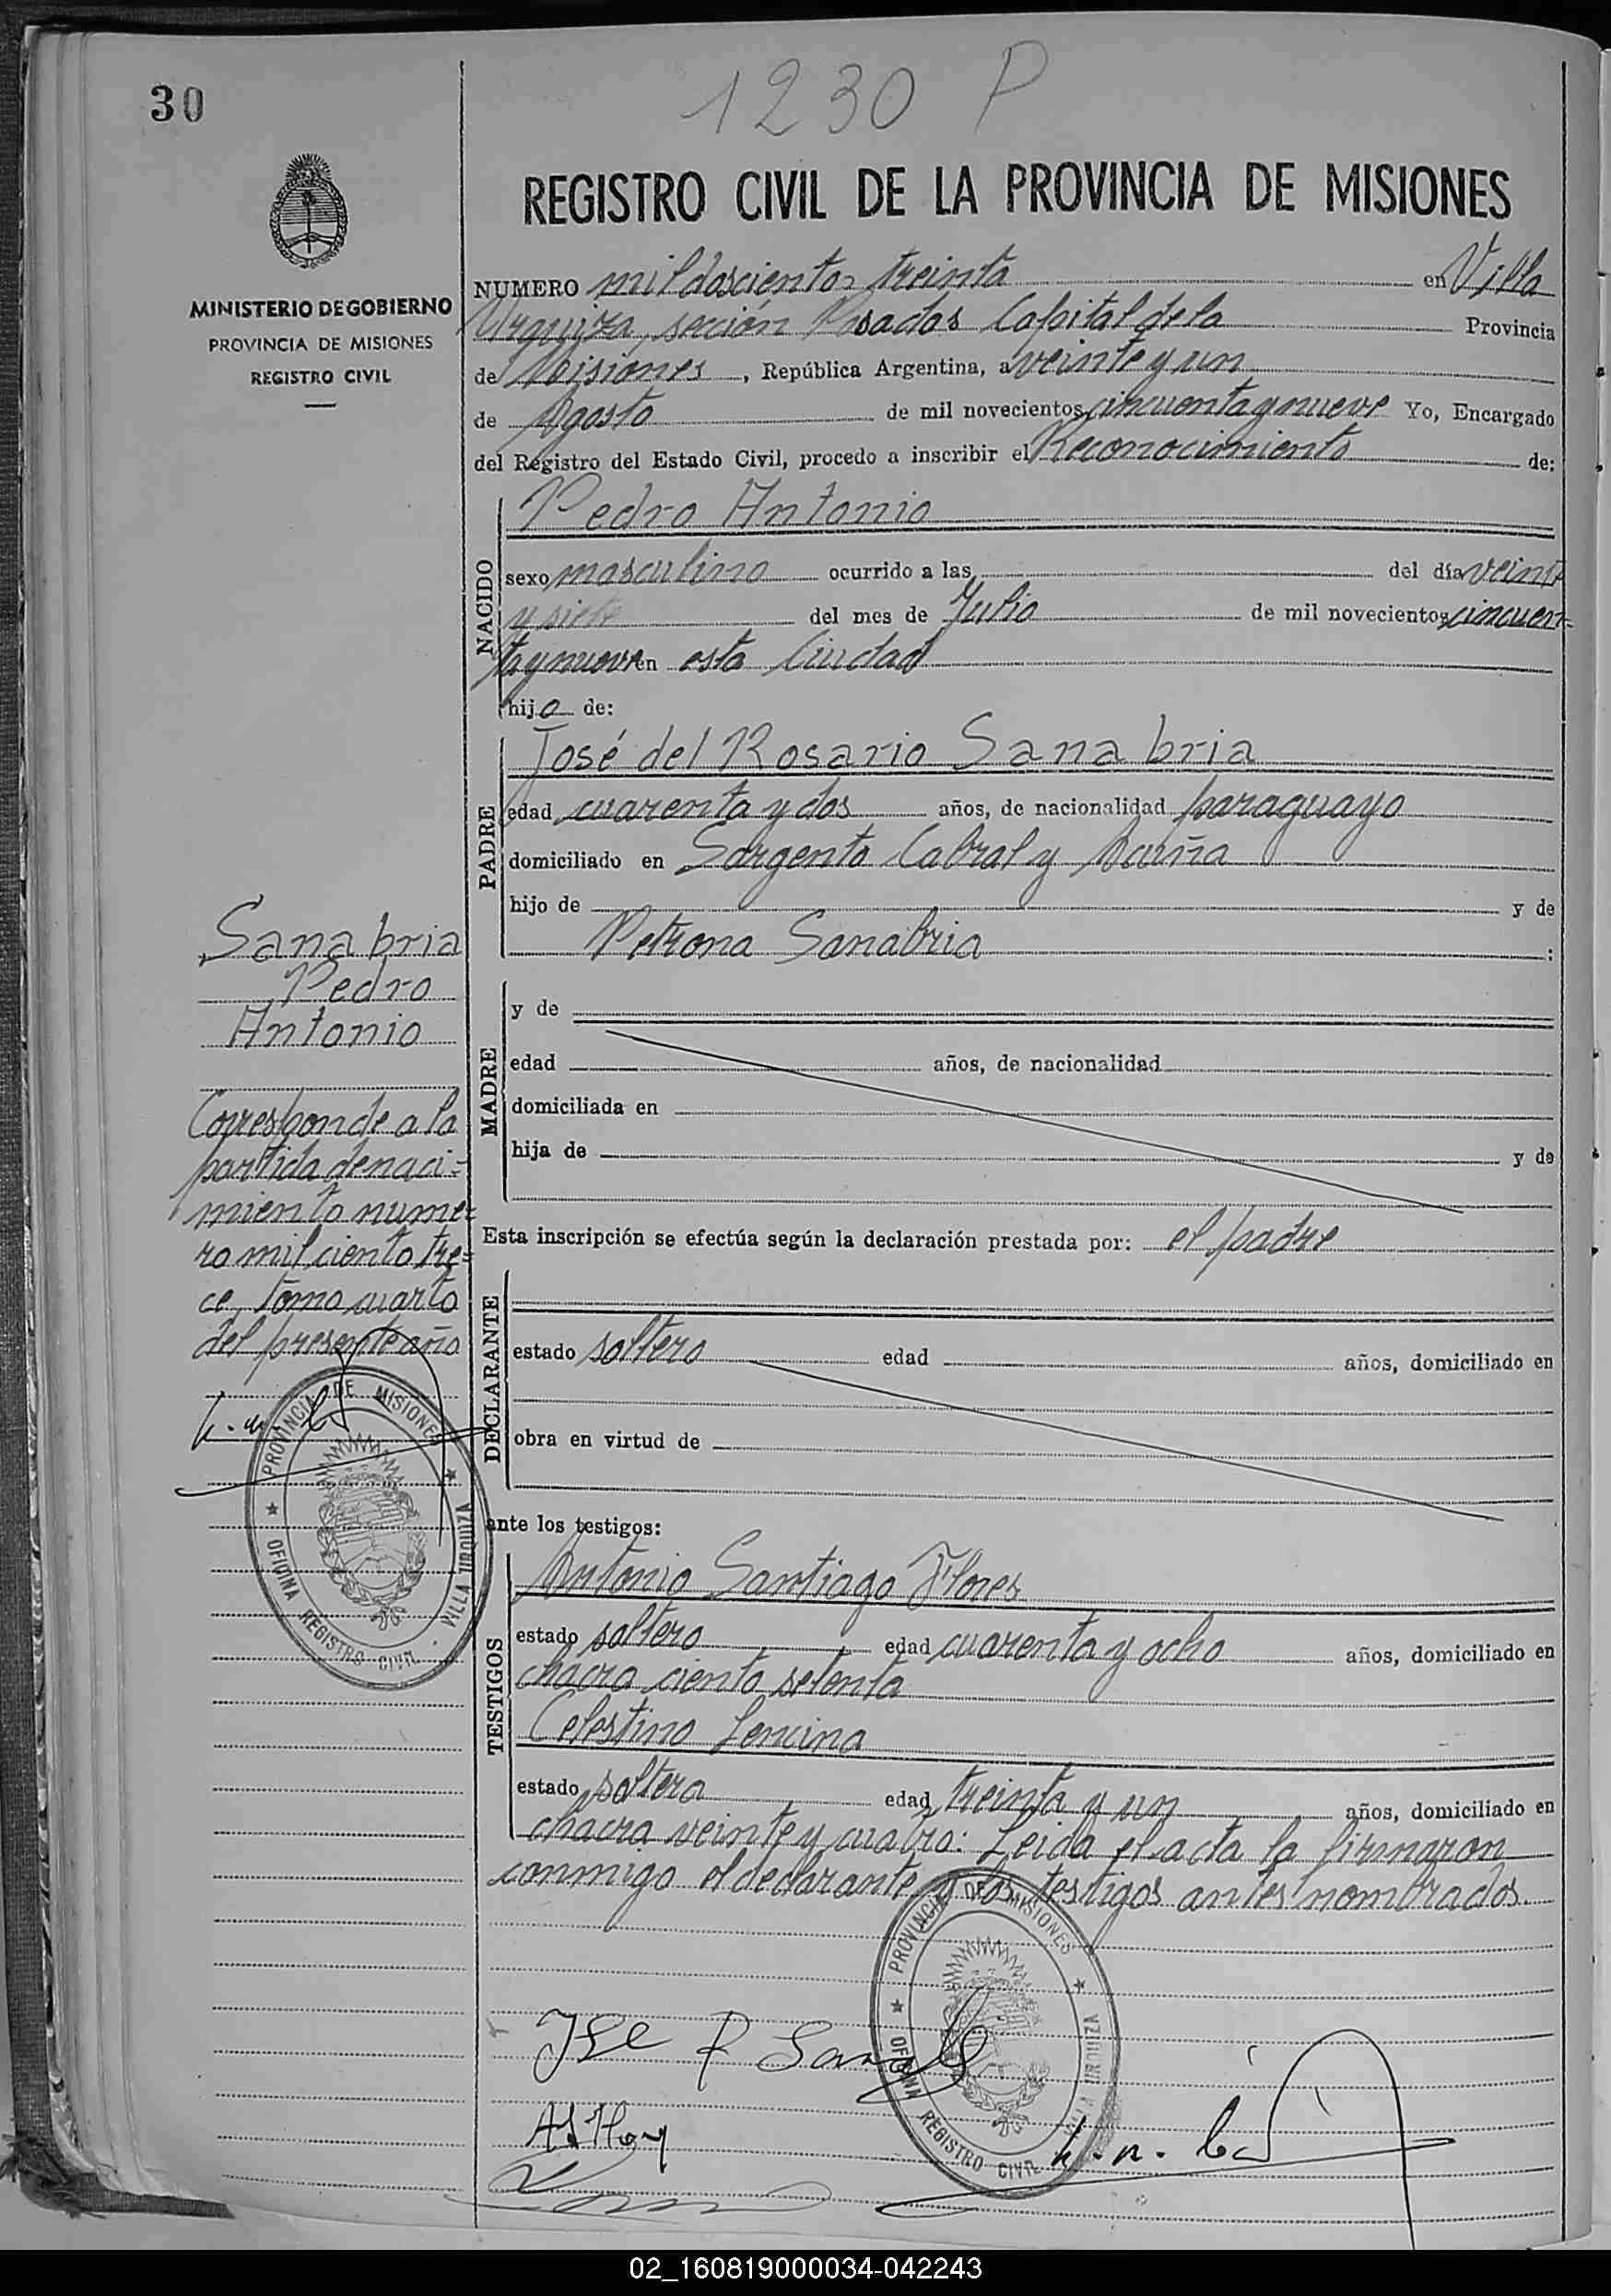 30
1230 P
MINISTERIO DE GOBIERNO
PROVINCIA DE MISIONES
REGISTRO CIVIL
REGISTRO CIVIL DE LA PROVINCIA DE MISIONES
NUMERO mil doscientos treinta en Villa
Urquiza, sección Posadas Capital de la Provincia
de Misiones, República Argentina, a veinte y un
de Agosto de mil novecientos cincuenta y nueve Yo, Encargado
del Registro del Estado Civil, procedo a inscribir el Reconocimiento de:
NACIDO
Pedro Antonio
sexo masculino ocurrido a las del día veinte
y siete del mes de Julio de mil novecientos cincuen-
ta y nueve en esta Ciudad
hijo de:
PADRE
José del Rosario Sanabria
edad cuarenta y dos años, de nacionalidad paraguayo
domiciliado en Sargento Cabral y
hijo de y de
Petrona Sanabria :
Sanabria
Pedro
Antonio
Corresponde a la
partida de naci-
miento nume-
ro mil ciento tre-
ce, Tomo cuarto
del presente año
MADRE
y de
edad años, de nacionalidad
domiciliada en
hija de y de
Esta inscripción se efectúa según la declaración prestada por: el padre
DECLARANTE
estado soltero edad años, domiciliado en
obra en virtud de
PROVINCIA DE MISIONES
OFICINA REGISTRO CIVIL · VILLA URQUIZA
ante los testigos:
TESTIGOS
Antonio Santiago Flores
estado soltero edad cuarenta y ocho años, domiciliado en
chacra ciento setenta
Celestino Lencina
estado soltero edad treinta y un años, domiciliado en
chacra veinte y cuatro: Leida el acta la firmaron
conmigo el declarante y los testigos antes nombrados.
PROVINCIA DE MISIONES
OFICINA REGISTRO CIVIL VILLA URQUIZA
02_160819000034-042243